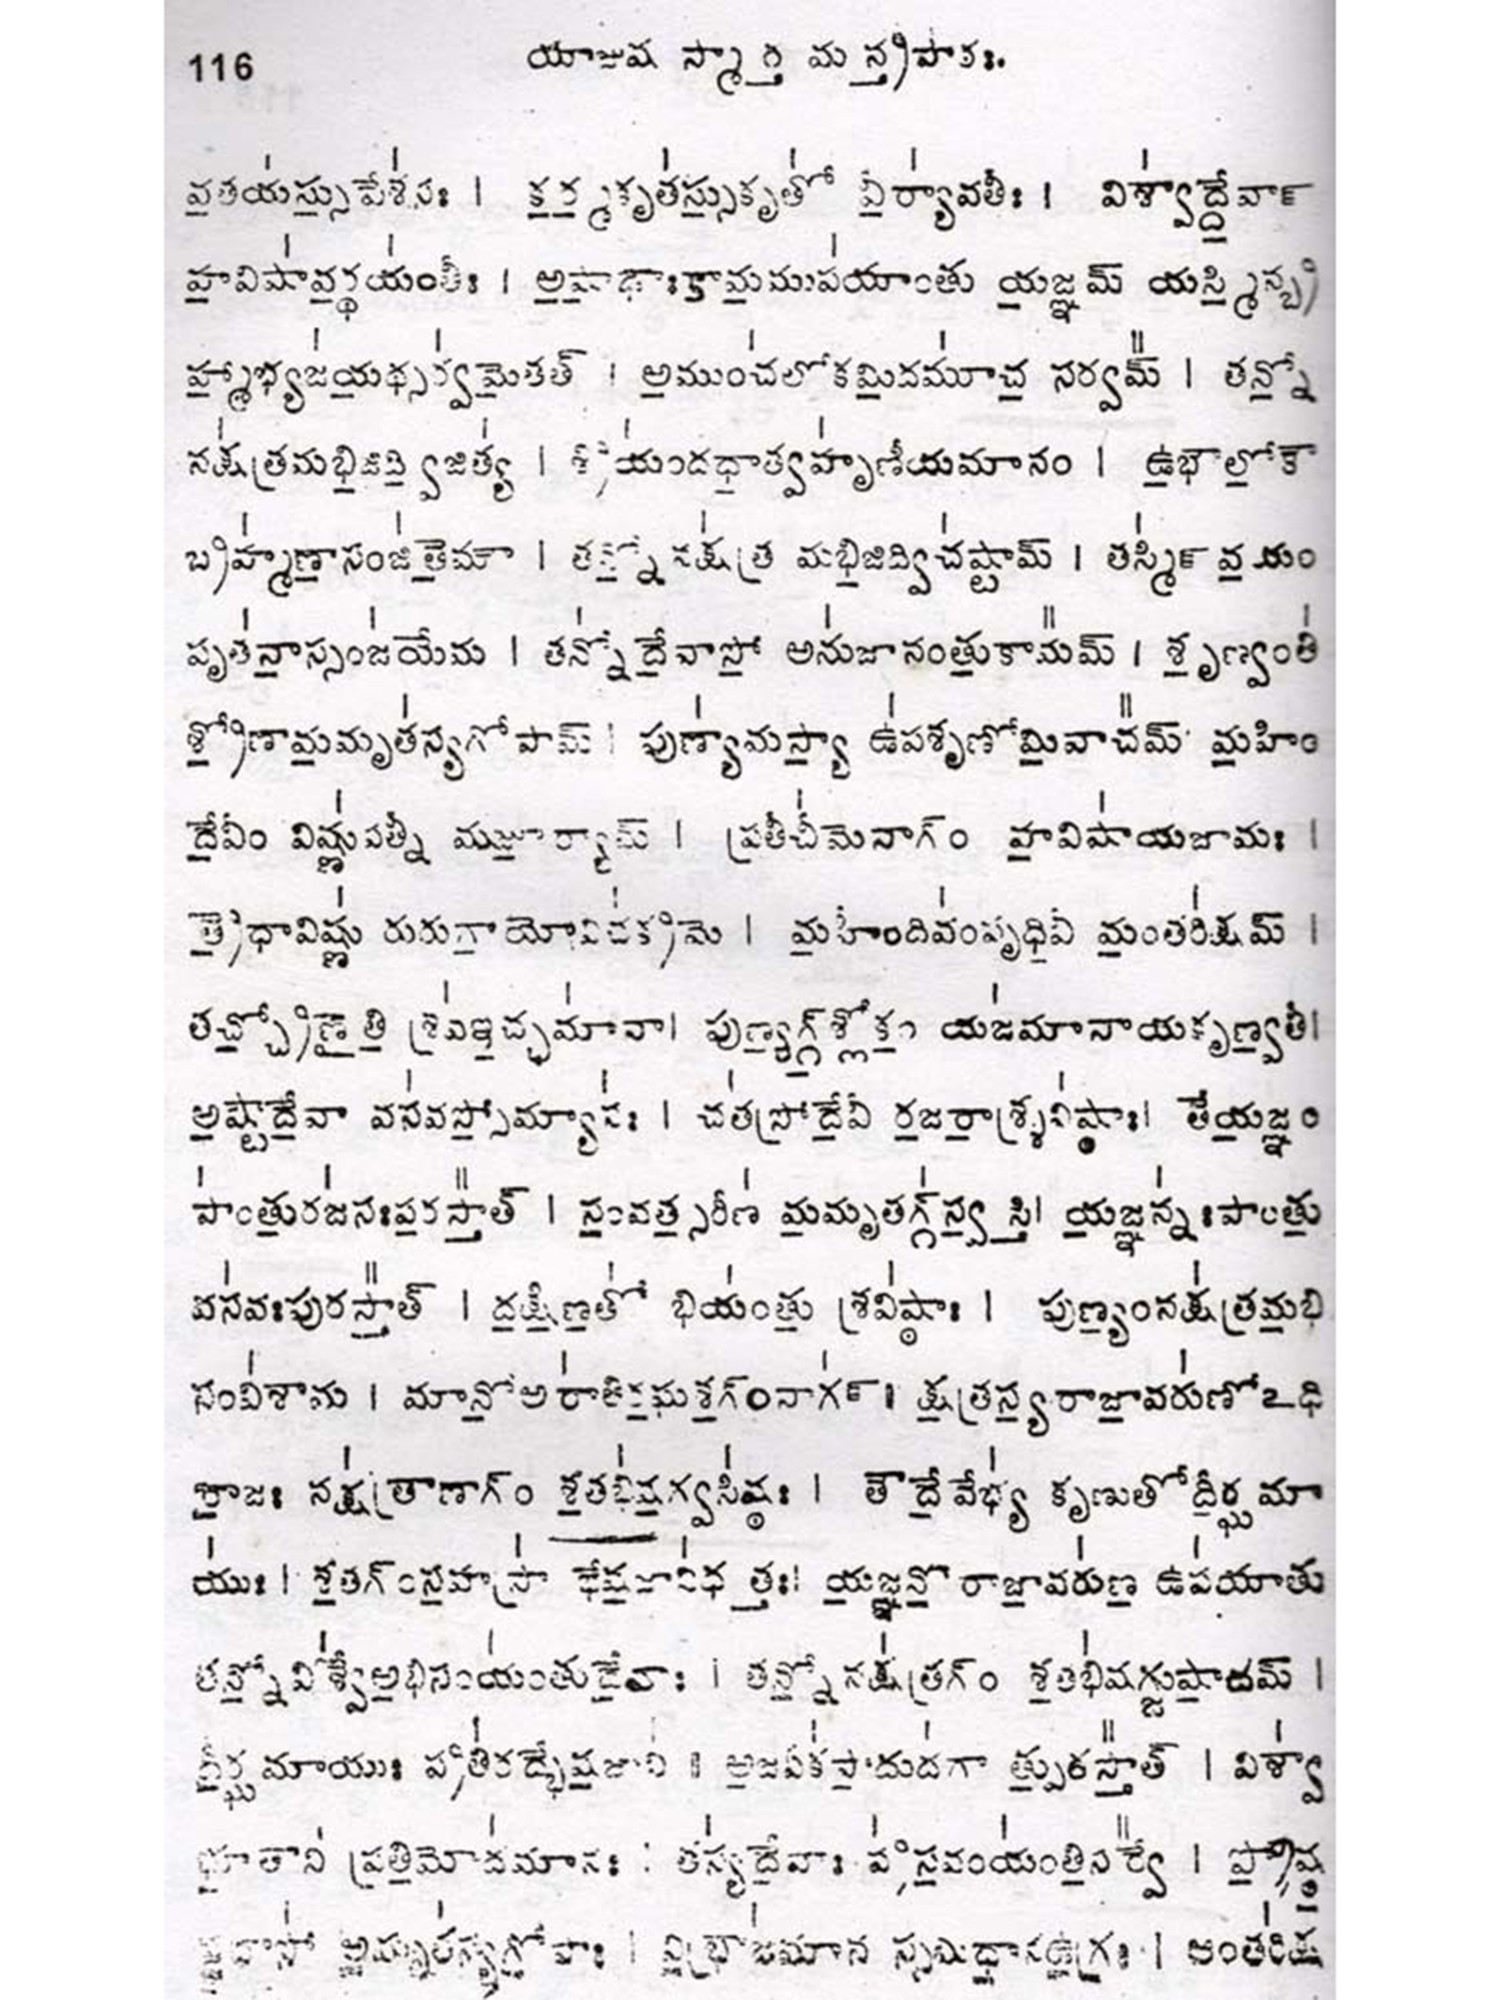 116 యాజుష స్మార్త మన్త్రపాఠః.
వ్రతయస్సుపేశసః । కర్మకృతస్సుకృతో వీర్యావతీః । విశ్వాద్దేవాన్
హవిషావర్ధయంతీః । అషాఢాఃకామముపయాంతు యజ్ఞమ్ యస్మిన్బ్ర
హ్మాభ్యజయథ్సర్వమేతత్ । అముంచలోకమిదమూచ సర్వమ్ । తన్నో
నక్షత్రమభిజిద్విజిత్య । శ్రియందధాత్వహృణీయమానం । ఉభౌలోకౌ
బ్రహ్మణాసంజితేమౌ । తన్నో నక్షత్ర మభిజిద్విచష్టామ్ । తస్మిన్ వయం
పృతనాస్సంజయేమ । తన్నోదేవాసో అనుజానంతుకామమ్ । శృణ్వంతి
శ్రోణామమృతస్యగోపామ్ । పుణ్యామస్యా ఉపశృణోమివాచమ్ మహీం
దేవీం విష్ణుపత్నీ మజూర్యామ్ । ప్రతీచీమేనాగ్ం హవిషాయజామః ।
త్రేధావిష్ణు రురుగాయోవిచక్రమే । మహీందివంపృథివీ మంతరిక్షమ్ ।
తచ్ఛ్రోణైతి శ్రవఇచ్ఛమానా। పుణ్యగ్గ్‌శ్లోకం యజమానాయకృణ్వతీ।
అష్టాదేవా వసవస్సోమ్యాసః । చతస్రోదేవీ రజరాశ్శ్రవిష్ఠాః। తేయజ్ఞం
పాంతురజసఃపరస్తాత్ । సంవత్సరీణ మమృతగ్గ్‌స్వస్తి। యజ్ఞన్నఃపాంతు
వసవఃపురస్తాత్ । దక్షిణతో భియంతు శ్రవిష్ఠాః । పుణ్యంనక్షత్రమభి
సంవిశామ । మానోఅరాతిరఘశగ్ంసాగన్ । క్షత్రస్యరాజావరుణోఽధి
రాజః నక్షత్రాణాగ్ం శతభిషగ్వసిష్ఠః । తౌదేవేభ్య కృణుతోదీర్ఘమా
యుః । శతగ్ంసహస్రా భేషజానిధత్తః। యజ్ఞన్నో రాజావరుణ ఉపయాతు
తన్నోవిశ్వేఅభిసంయంతుదేవాః । తన్నోనక్షత్రగ్ం శతభిషగ్జుషాణమ్ ।
దీర్ఘమాయుః ప్రతిరద్భేషజాని । అజఏకపాదుదగా త్పురస్తాత్ । విశ్వా
భూతాని ప్రతిమోదమానః । తస్యదేవాః ప్రసవంయంతిసర్వే । ప్రోష్ఠ
పదాసో అమృతస్యగోపాః । విభ్రాజమాన స్సమిధానఉగ్రః । అంతరిక్ష